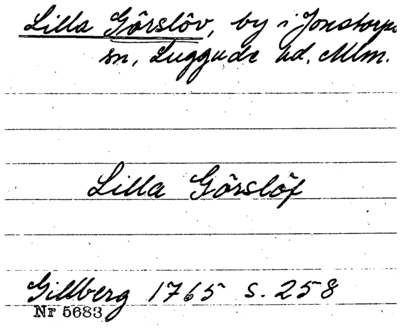 Lilla Görslöv, by i Jonstorps
sn, Luggude hd. Mlm.
Lilla Görslöf
Gillberg 1765 s. 258
Nr 5683